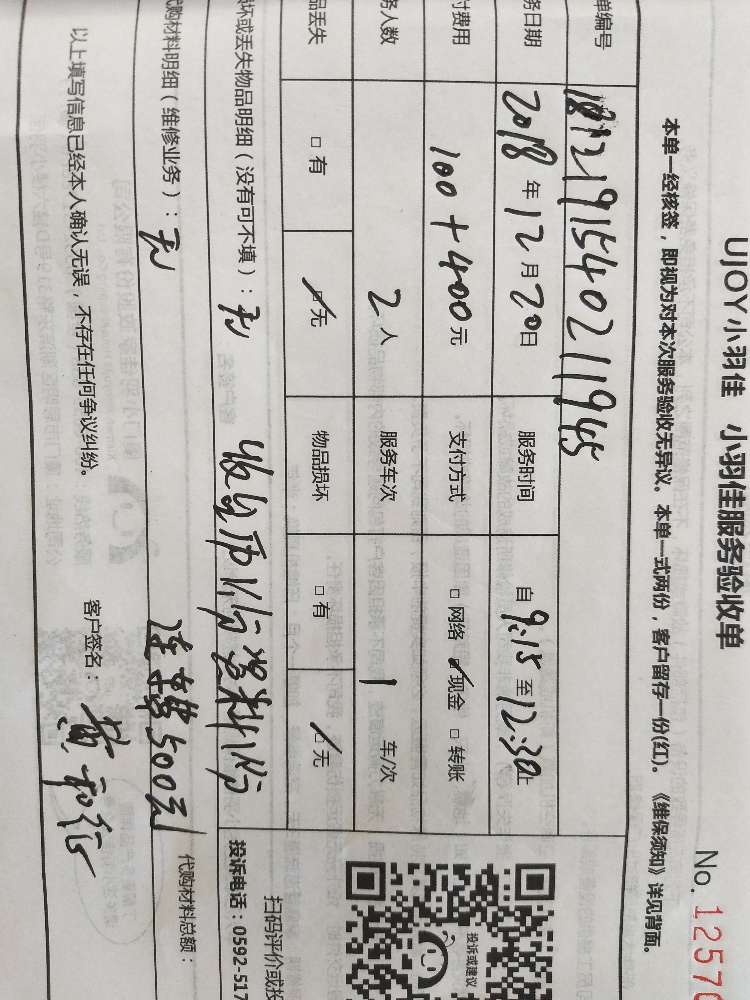 UJOY小羽佳 小羽佳服务验收单
No. 12570
本单一经核签，即视为对本次服务验收无异议。本单一式两份，客户留存一份(红)。《维保须知》详见背面。
单编号 1812191540211945
务日期 2018 年 12 月 20 日 服务时间 自 9:15 至 12:30 止
付费用 100+400 元 支付方式 □ 网络 ☑ 现金 □ 转账
务人数 2 人 服务车次 1 车/次
品丢失 □ 有 ☑ 无 物品损坏 □ 有 ☑ 无
投诉或建议
扫码评价或投
坏或丢失物品明细（没有可不填）：无 收 1份 资料1份
投诉电话：0592-517
代购材料明细（维修业务）：无 费500元 代购材料总额：
以上填写信息已经本人确认无误，不存在任何争议纠纷。 客户签名：